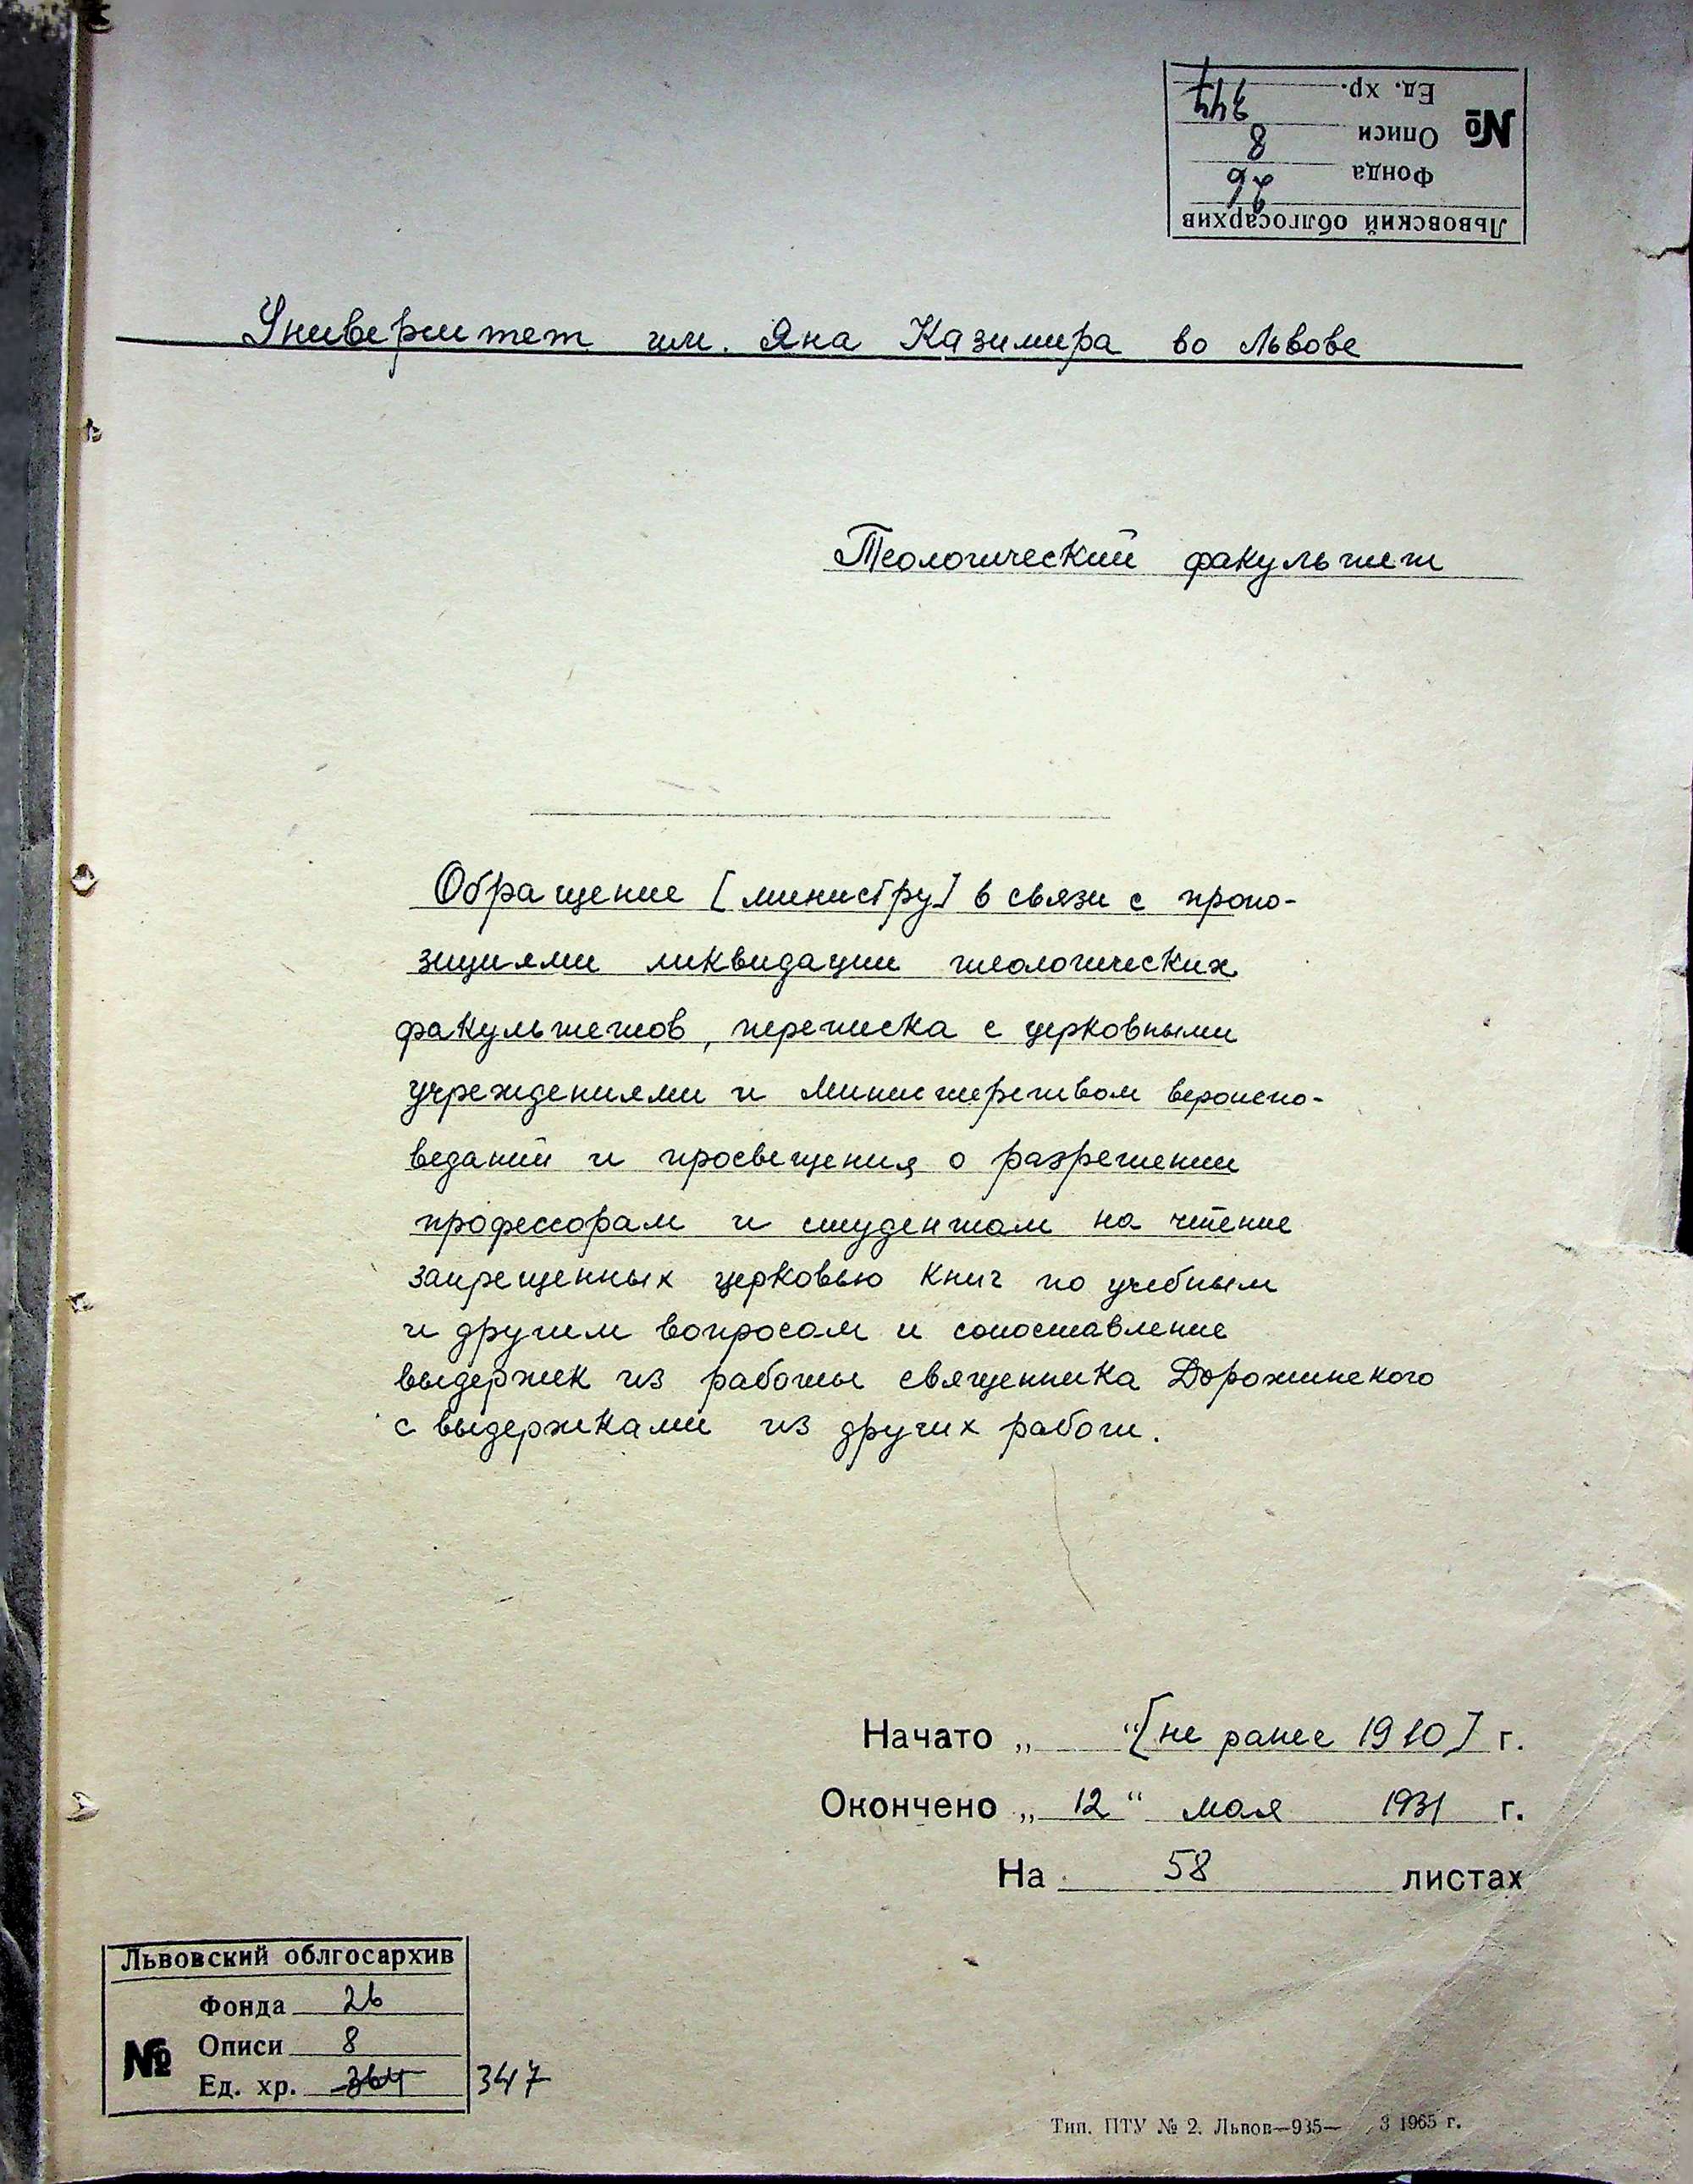 Львовский облгосархив
Фонда 26
Описи 8
№
Ед. хр. 347
Университет им. Яна Казимира во Львове
Теологический факультет
Обращение [министру] в связи с пропо-
зициями ликвидации теологических
факультетов, переписка с церковными
учреждениями и Министерством вероиспо-
веданий и просвещения о разрешении
профессорам и студентам на чтение
запрещенных церковью книг по учебным
и другим вопросам и сопоставление
выдержек из работы священника Дорожинского
с выдержками из других работ.
Начато „ “ [не ранее 1910] г.
Окончено „ 12 “ мая 1931 г.
На 58 листах
Львовский облгосархив
Фонда 26
Описи 8
№
Ед. хр. 364 347
Тип. ПТУ № 2. Львов—935— 3 1965 г.